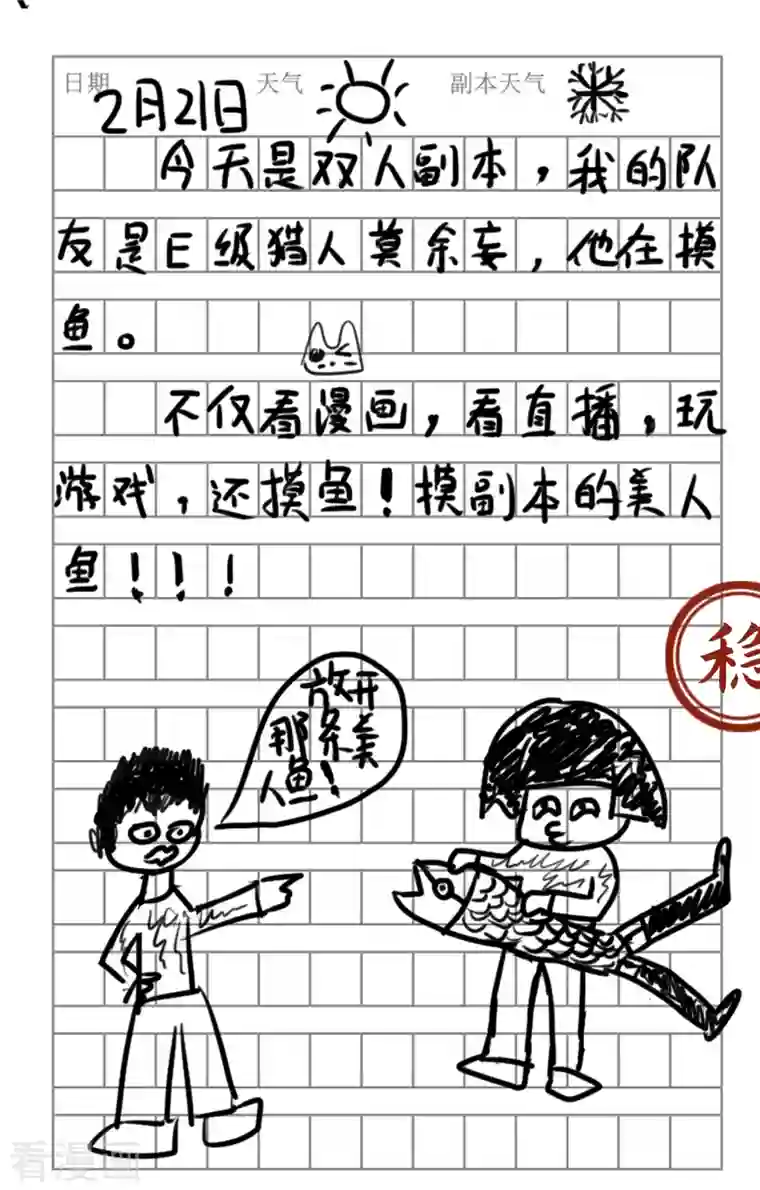 日期 2月21日 天气 副本天气
今天是双人副本，我的队
友是E级猎人莫余妄，他在摸
鱼。
不仅看漫画，看直播，玩
游戏，还摸鱼！摸副本的美人
鱼！！！
稳
放开
那条美
人鱼！
看漫画